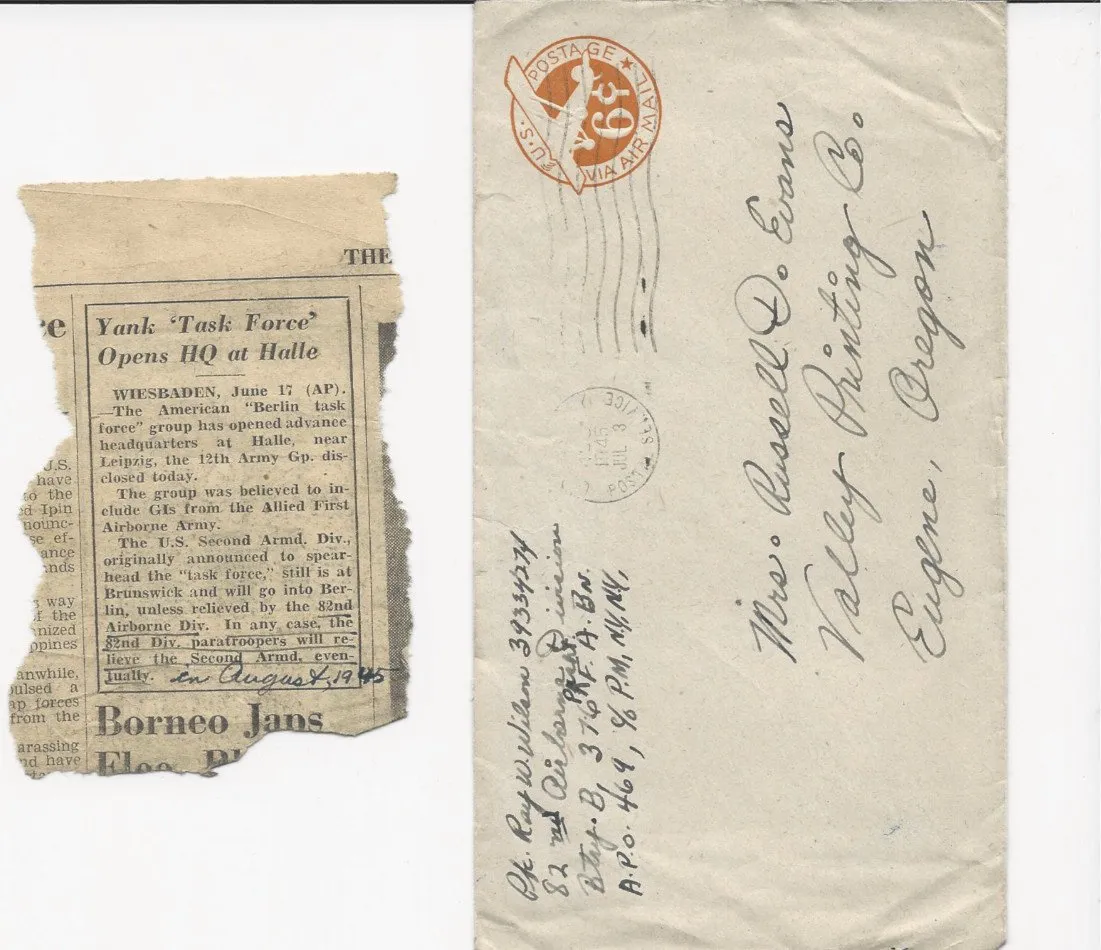 THE
Yank ‘Task Force’
Opens HQ at Halle
WIESBADEN, June 17 (AP).
—The American “Berlin task
force” group has opened advance
headquarters at Halle, near
Leipzig, the 12th Army Gp. dis-
closed today.
The group was believed to in-
clude GIs from the Allied First
Airborne Army.
The U.S. Second Armd. Div.,
originally announced to spear-
head the “task force,” still is at
Brunswick and will go into Ber-
lin, unless relieved by the 82nd
Airborne Div. In any case, the
82nd Div. paratroopers will re-
lieve the Second Armd. even-
tually. in August, 1945
Borneo Japs
U.S.
have
to the
d Ipin
nounc-
se ef-
ance
nds
way
of the
nized
ppines
anwhile,
pulsed a
ap forces
from the
arassing
nd have
U.S. POSTAGE
VIA AIR MAIL
6¢
1945
JUL 3
POSTAL SERVICE
Pfc. Ray W. Wilson 39334274
82nd Airborne Division
Btry. B, 376 Prcht F. A. Bn.
A.P.O. 469, c/o P.M, N.Y, N.Y,
Mrs. Russell D. Evans
Valley Printing Co.
Eugene, Oregon